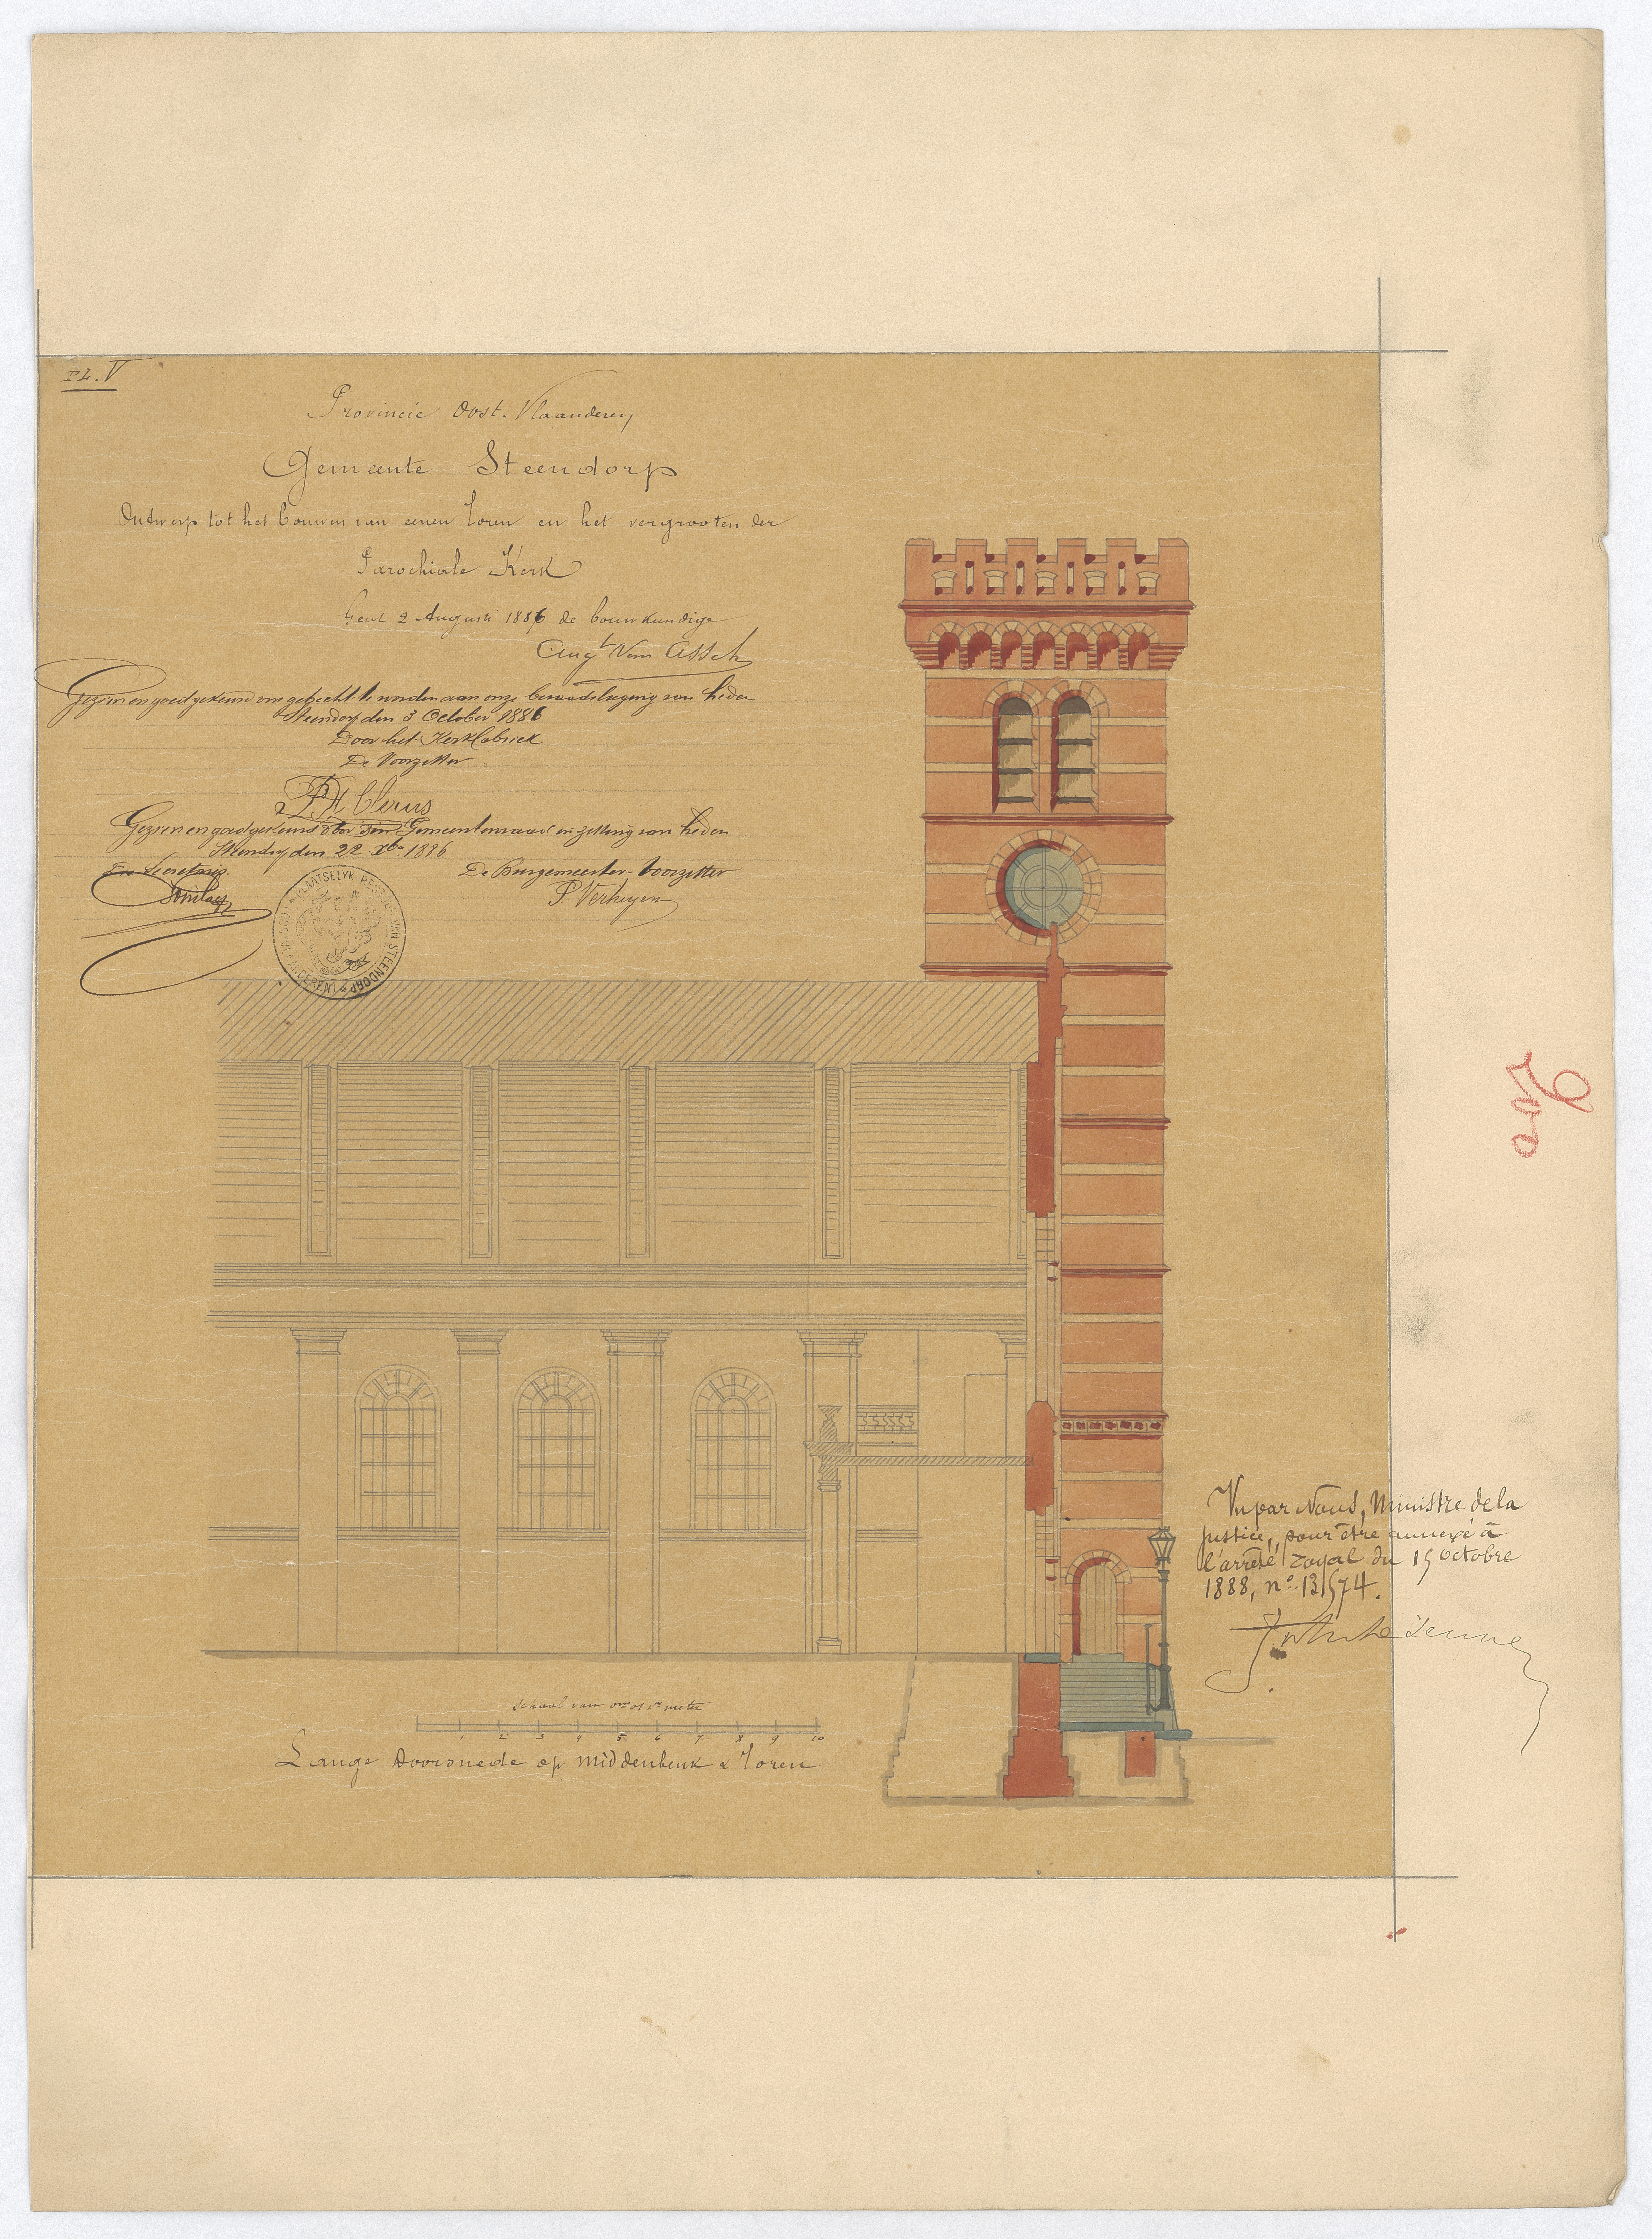 PL. V
Provincie Oost-Vlaanderen
Gemeente Steendorp
Ontwerp tot het bouwen van eenen Toren en het vergrooten der
Parochiale Kerk
Gent 2 Augusti 1886 de bouwkundige
Aug^t Van Assche
Gezien en goedgekeurd om gehecht te worden aan onze beraadslaging van heden
Steendorp den 3 October 1886
Door het Kerkfabriek
De Voorzitter
Gezien en goedgekeurd door den Gemeenteraad in zitting van heden
Steendorp den 22 Xbr 1886
De Secretaris
De Burgemeester-Voorzitter
P. Verheyen
PLAATSELYK BESTUUR VAN STEENDORP
Vu par Nous, Ministre de la
justice, pour être annexé à
l'arrêté royal du 19 octobre
1888, n° 13574.
Schaal van 0m01 pr meter
1 2 3 4 5 6 7 8 9 10
Lange Doorsnede op Middenbeuk & Toren